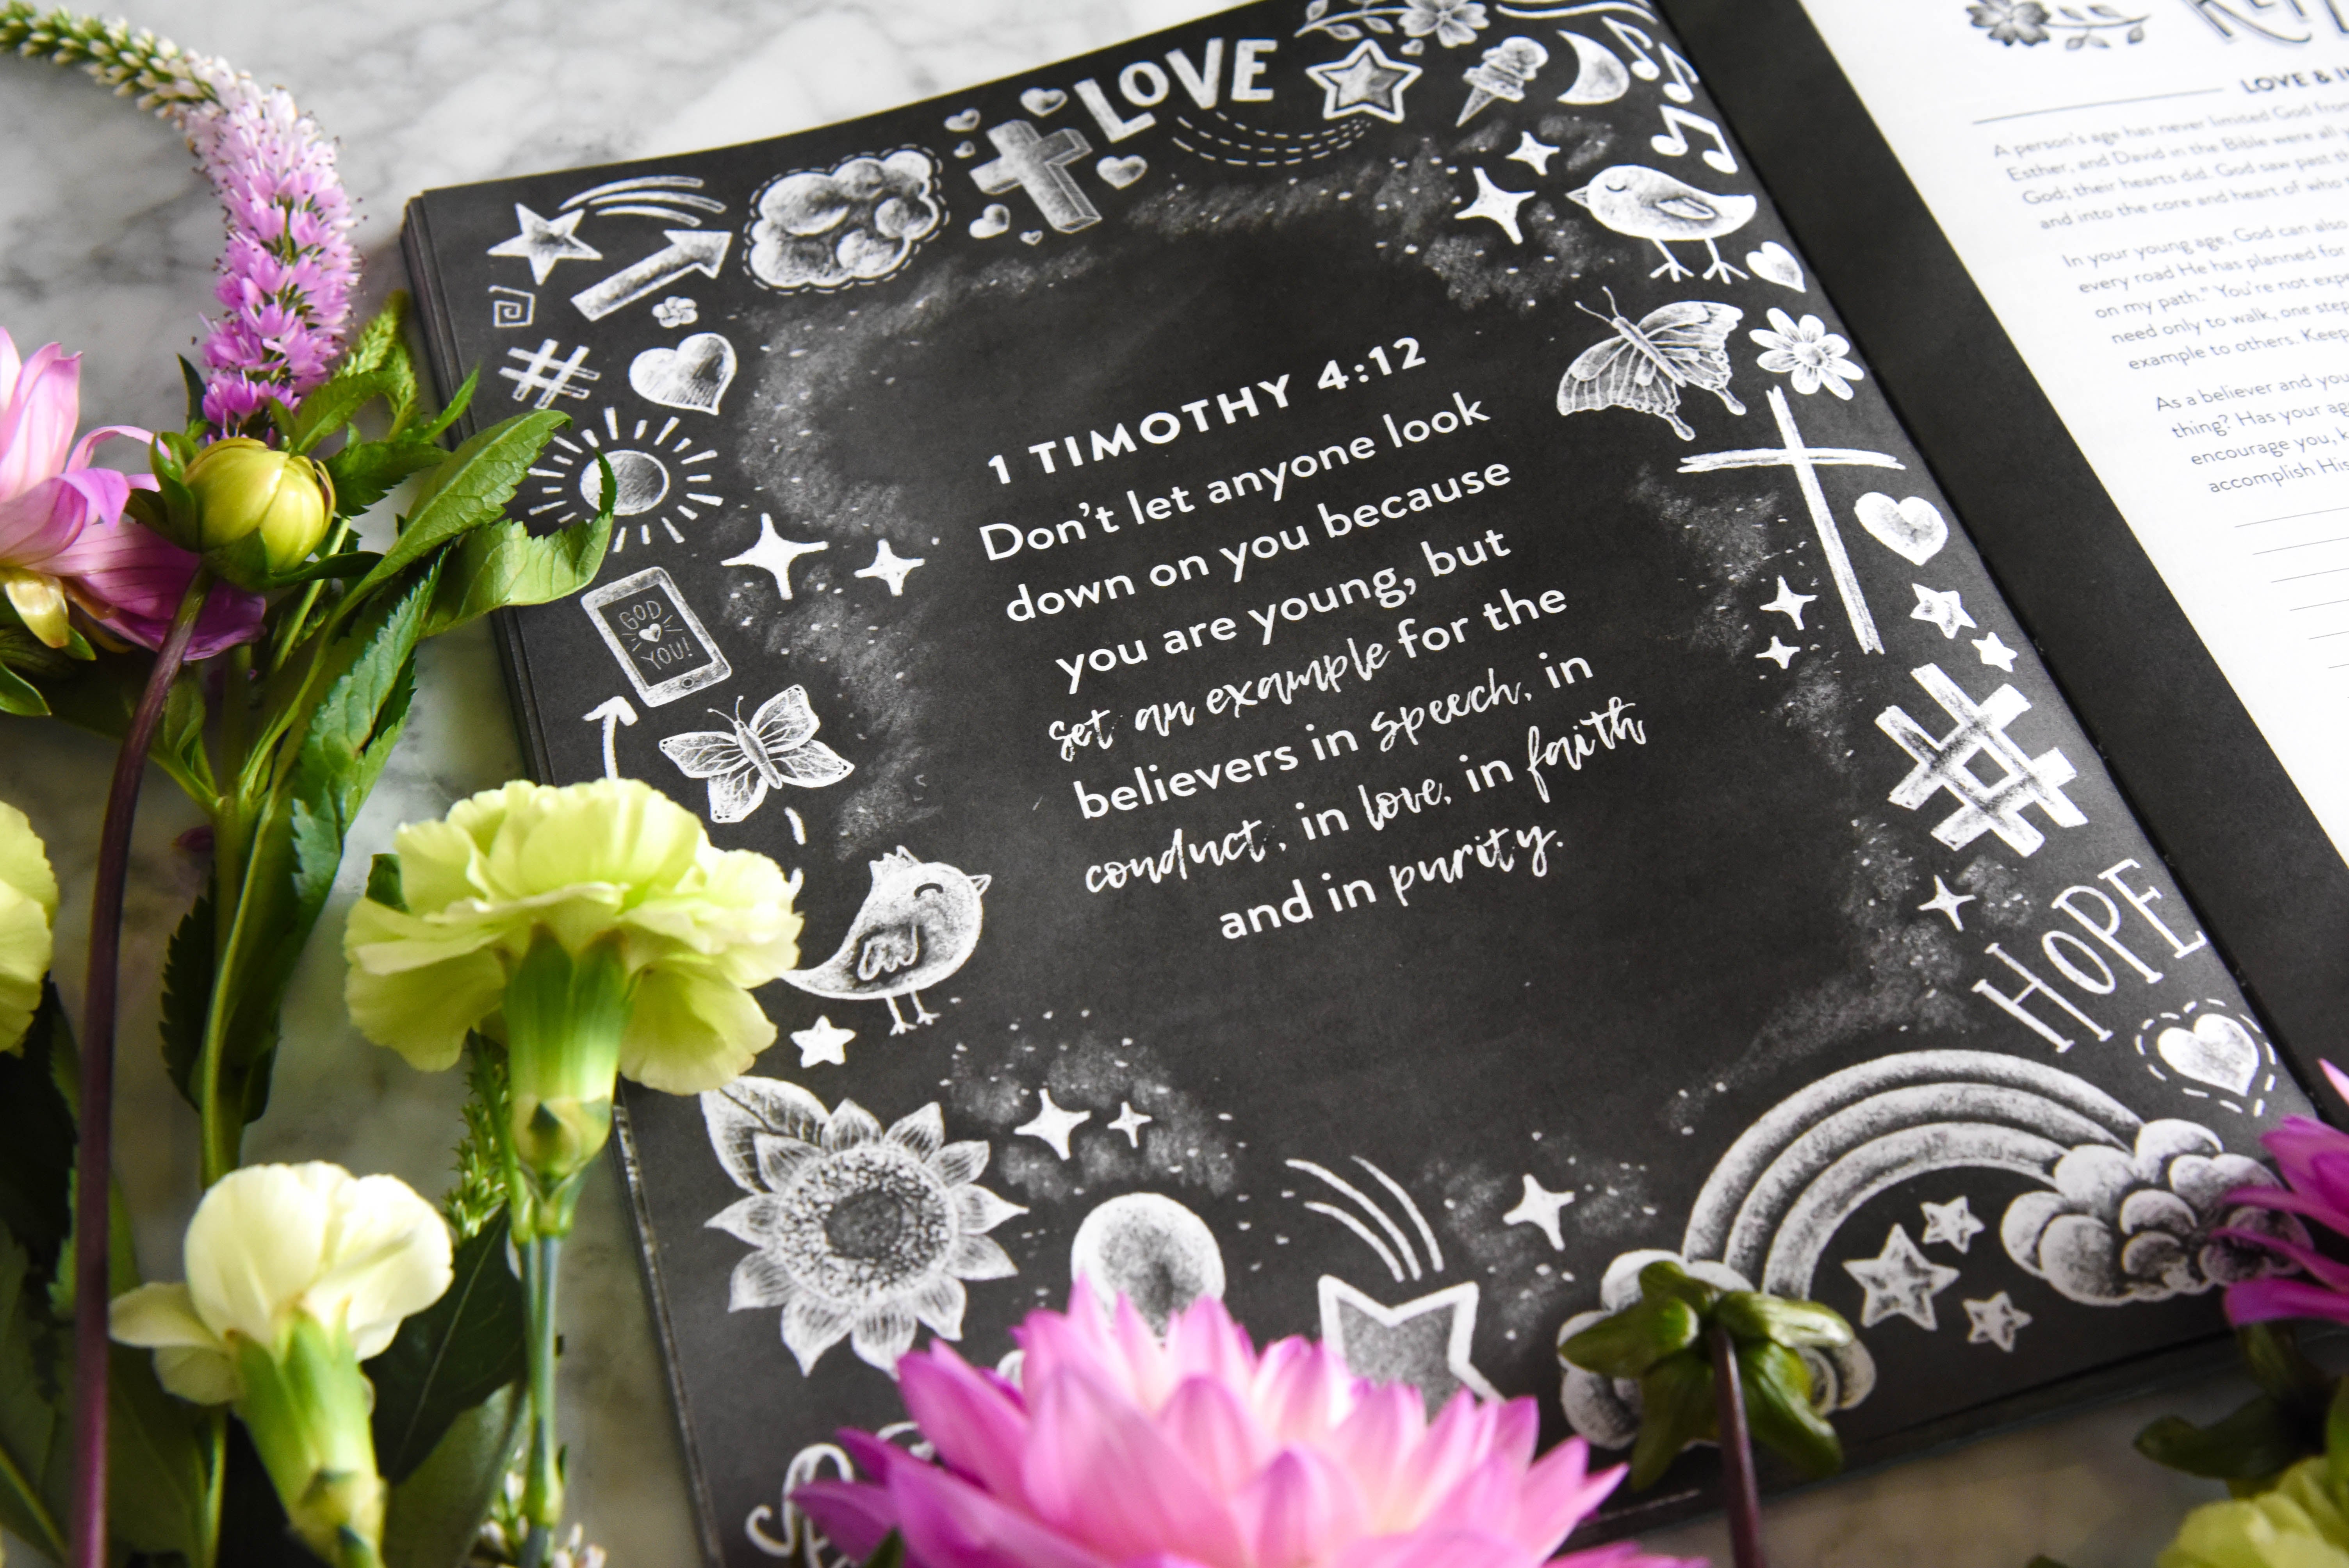 LOVE
1 TIMOTHY 4:12
Don't let anyone look
down on you because
you are young, but
set an example for the
believers in speech, in
conduct, in love, in faith
and in purity.
GOD
YOU!
HOPE
LOVE &
A person's age has never limited God
Esther, and David in the Bible were all
God; their hearts did. God saw past
and into the core and heart of
In your young age, God can also
every road He has planned for
on my path." You're not
need only to walk, one
example to others. Keep
As a believer and
thing? Has your
encourage you,
accomplish His